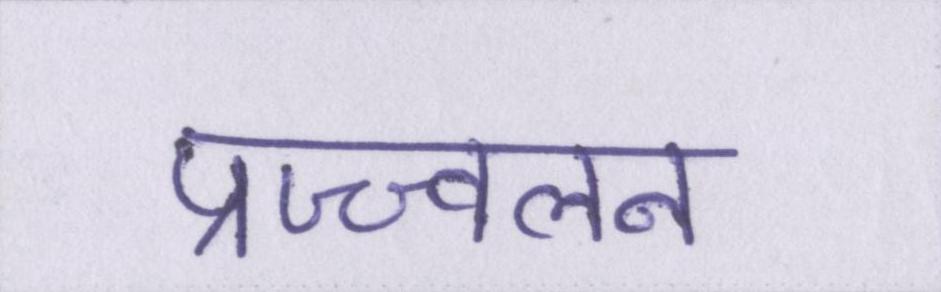 प्रज्ज्वलन